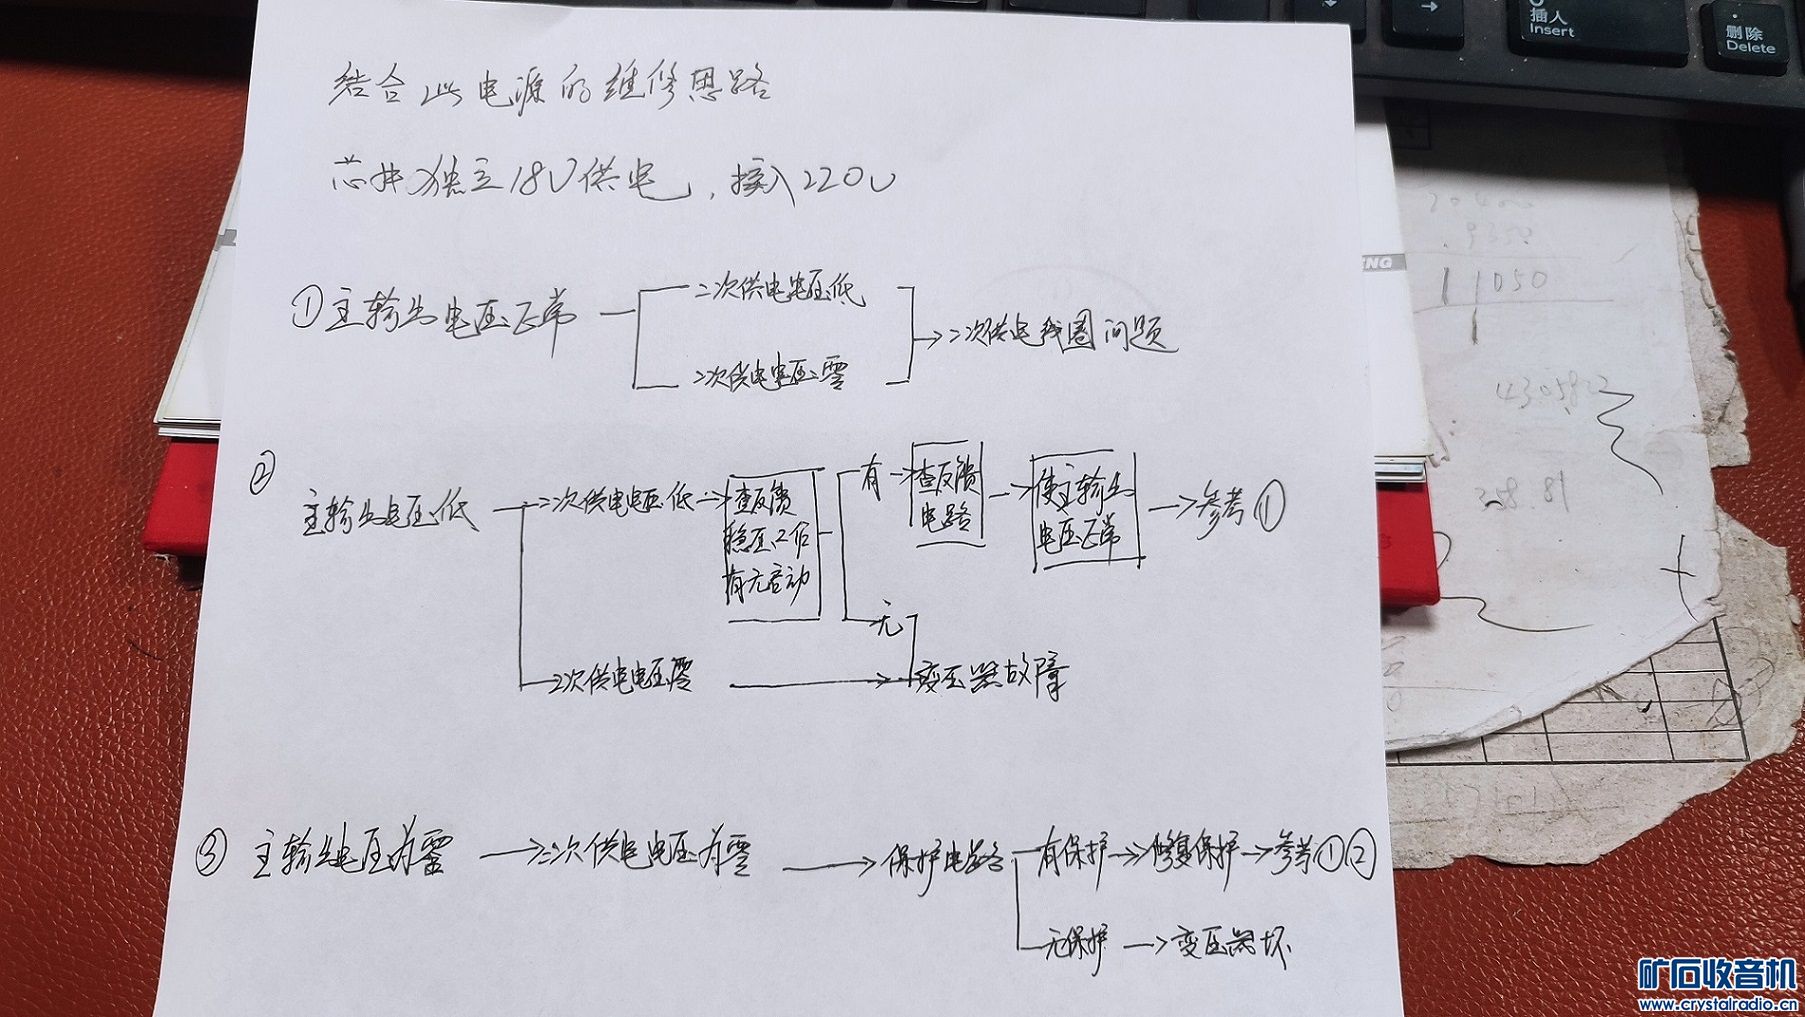 插入
Insert
删除
Delete
结合此电源的维修思路
芯片独立18V供电，接入220V
NG
11050
①主输出电压正常
二次供电电压低
二次供电电压零
二次供电线圈问题
430582
358.81
②
主输出电压低
二次供电电压低
查反馈
稳压工作
有无启动
有
查反馈
电路
使主输出
电压正常
参考①
无
二次供电电压零
变压器故障
③主输出电压为零
二次供电电压为零
保护电路
有保护
修复保护
参考①②
无保护
变压器坏
矿石收音机
www.crystalradio.cn